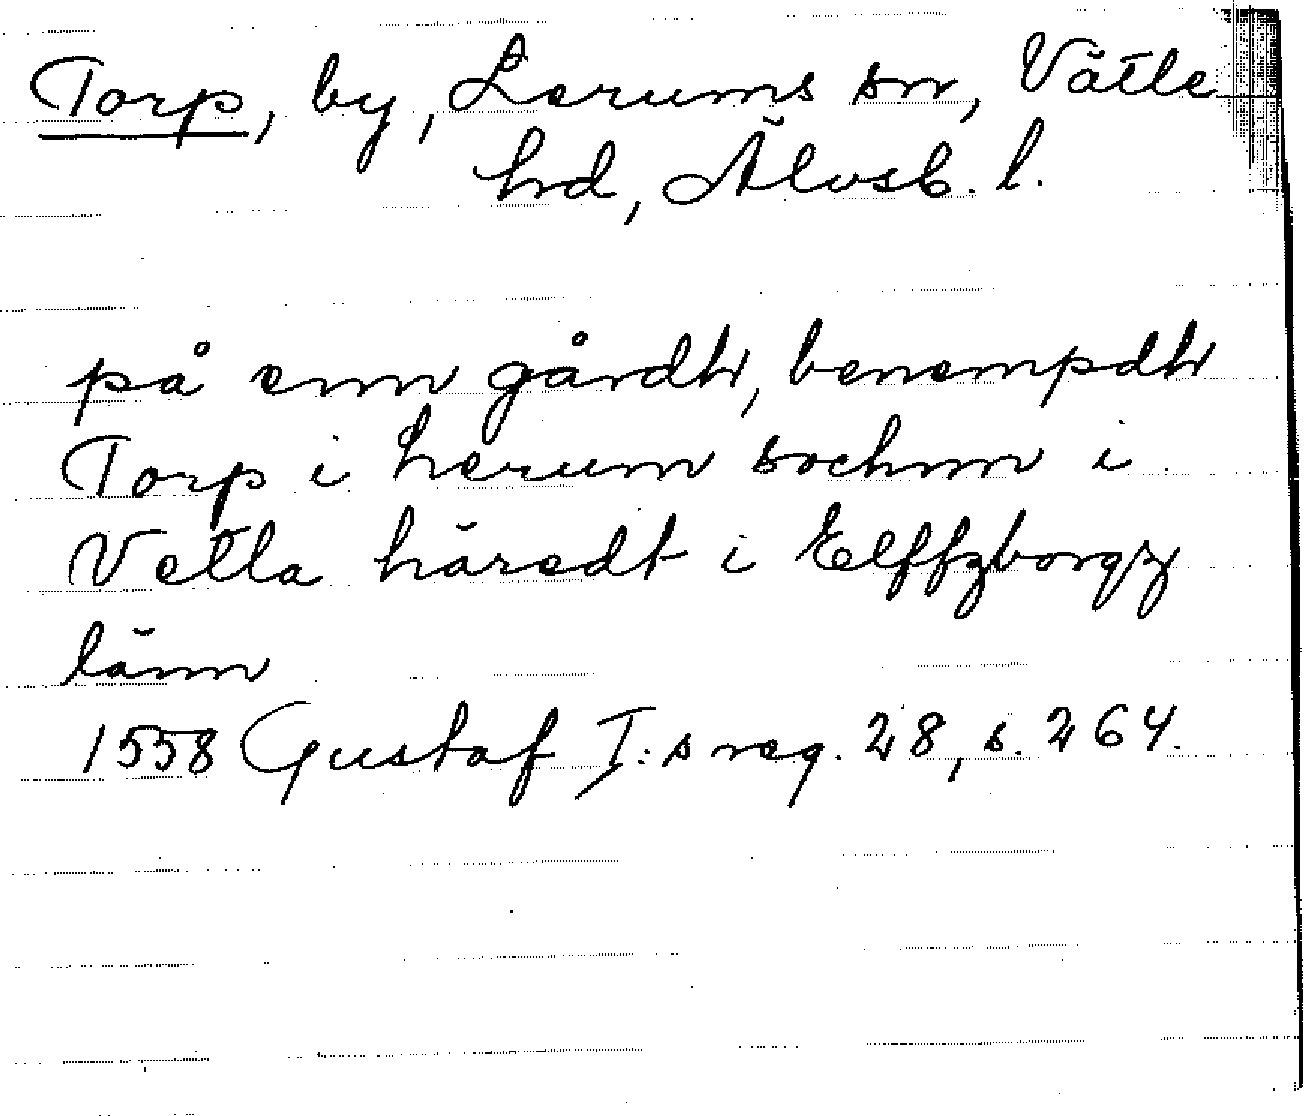 Torp, by, Lerums sn, Vättle
hd, Älvsb. l.
på enn gårdh, benempdh
Torp i herum sochnn i
Vetla häredt i Elffzborgz
länn
1558 Gustaf I:s reg. 28, s. 264.